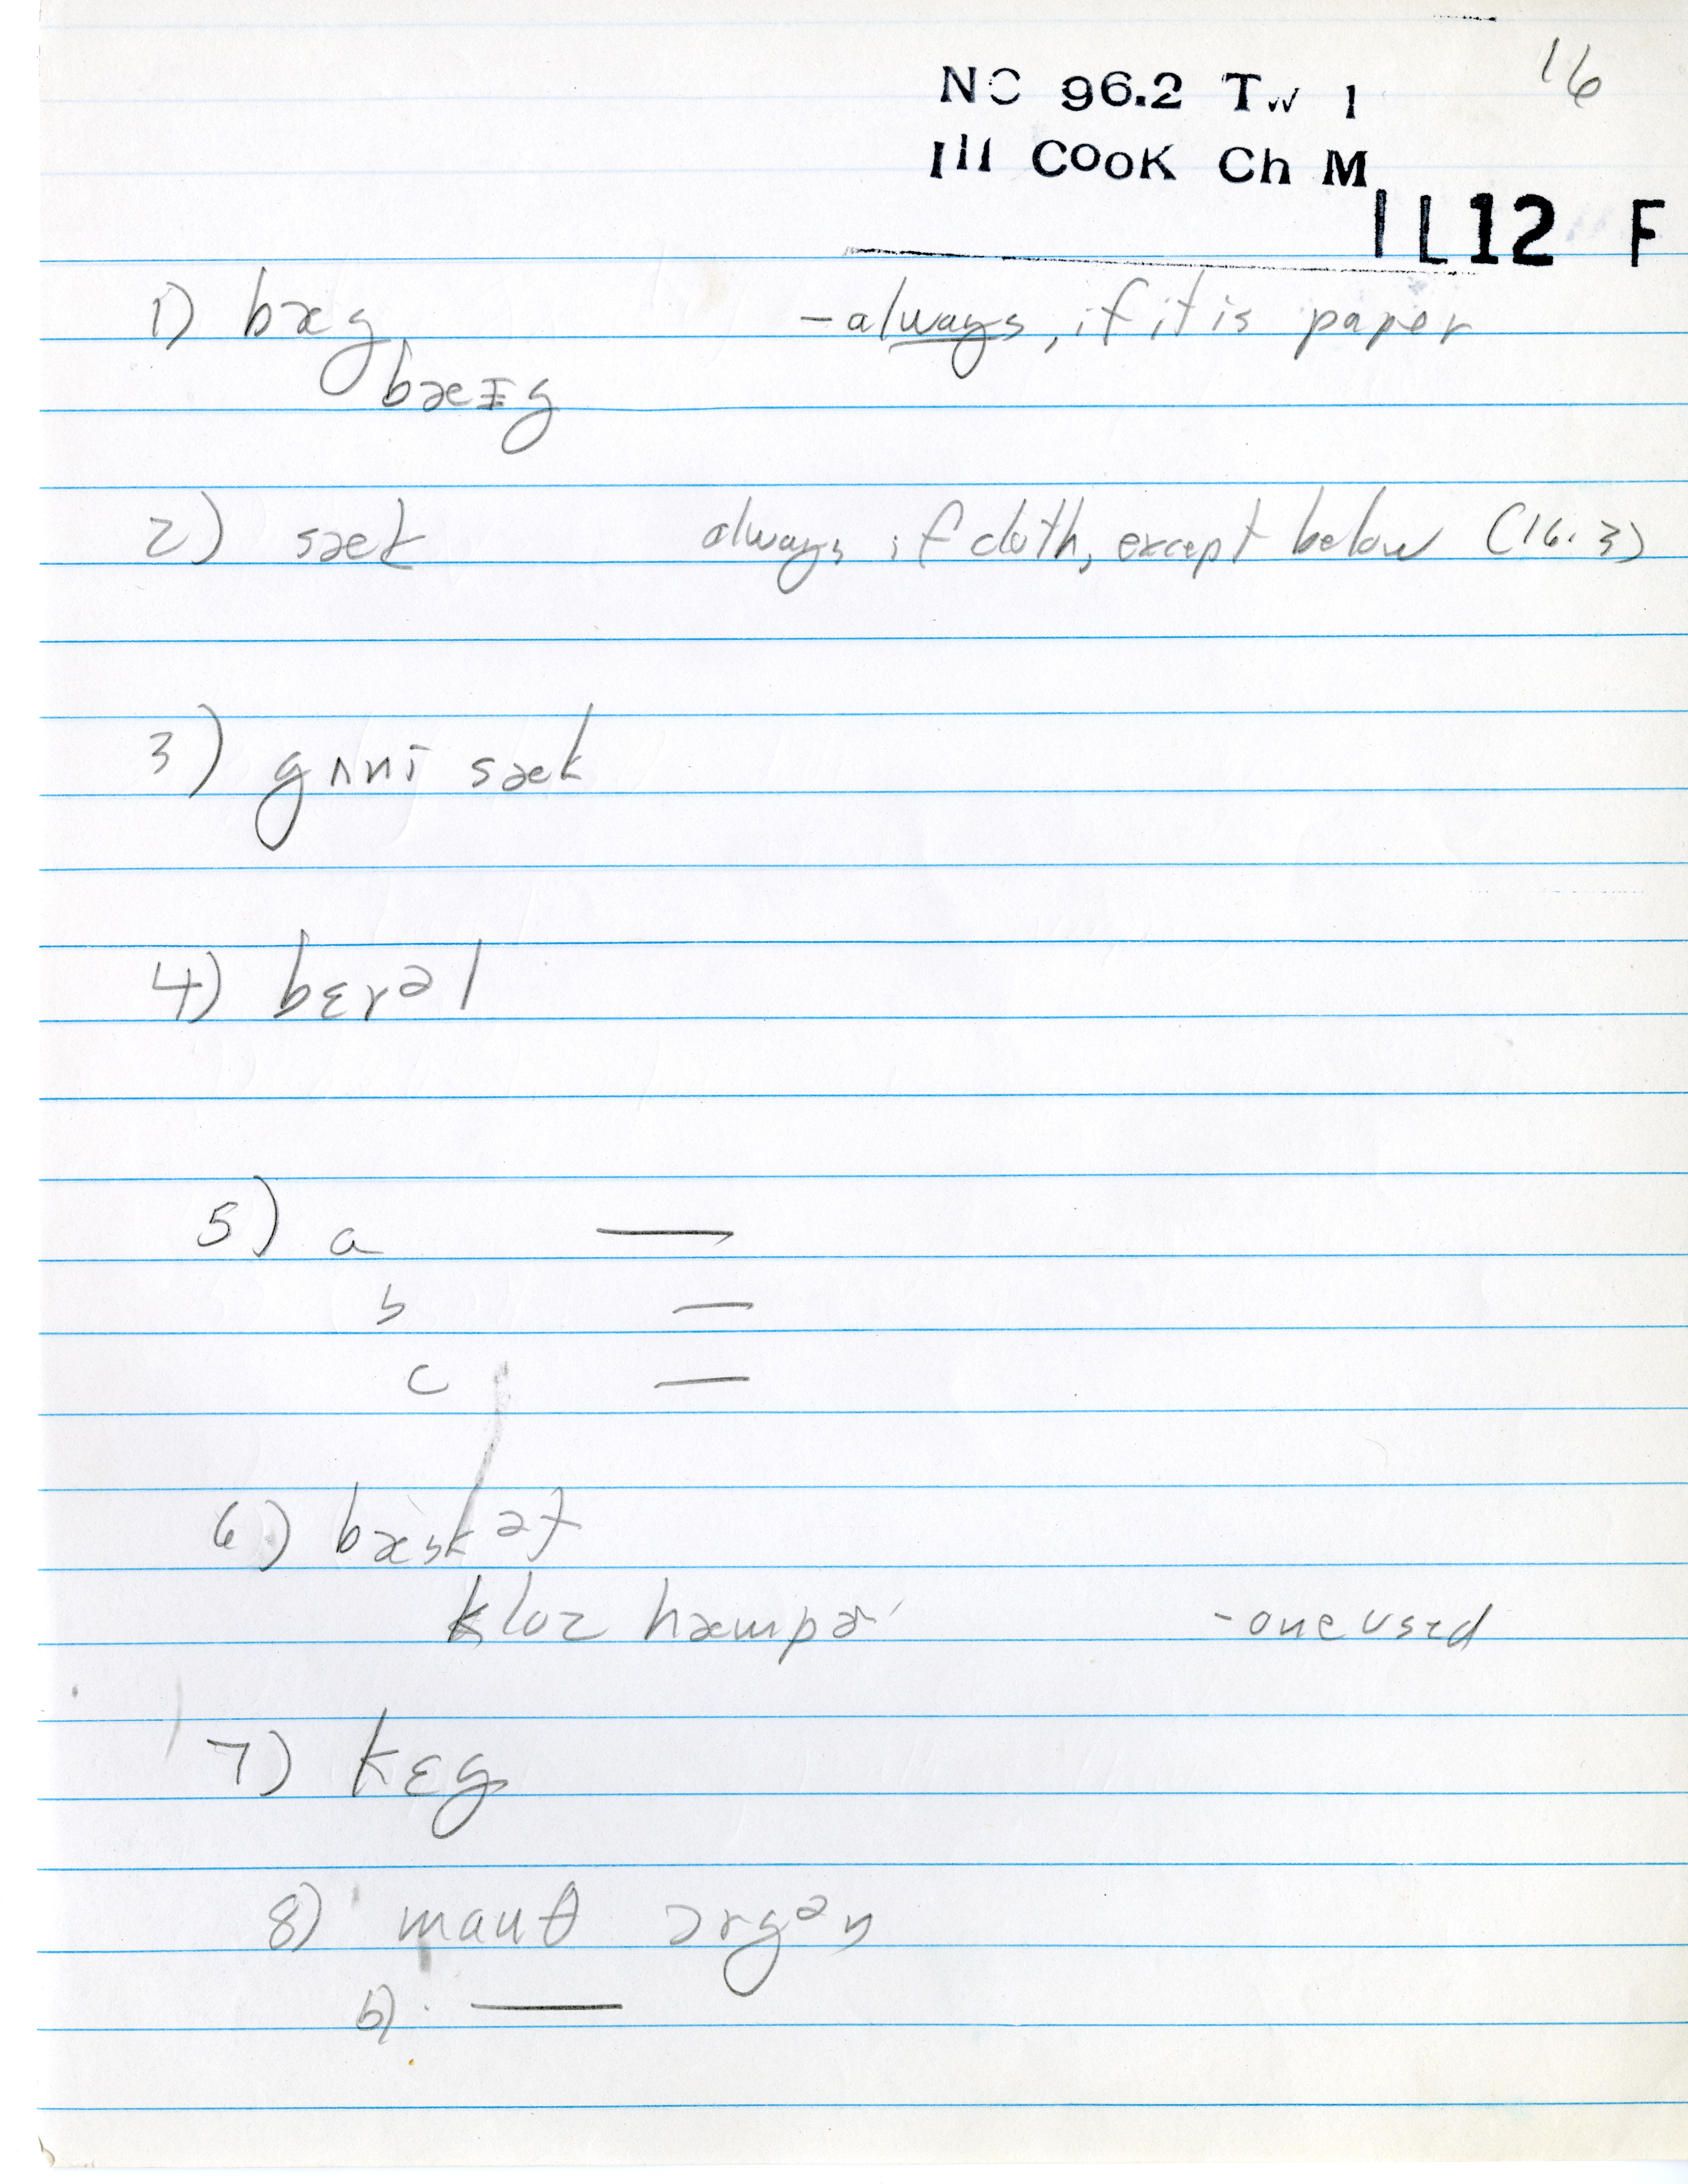 16
NC 96.2 Tw 1
Ill COOK Ch M
IL12 F
1) bæg - always, if it is paper
bæɪg
2) sæk always if cloth, except below (16.3)
3) gʌnɪ sæk
4) bɛrəl
5) a —
b —
c —
6) bæskət
kloz hæmpɚ - one used
7) kɛg
8) mauθ ɔrgən
b) —